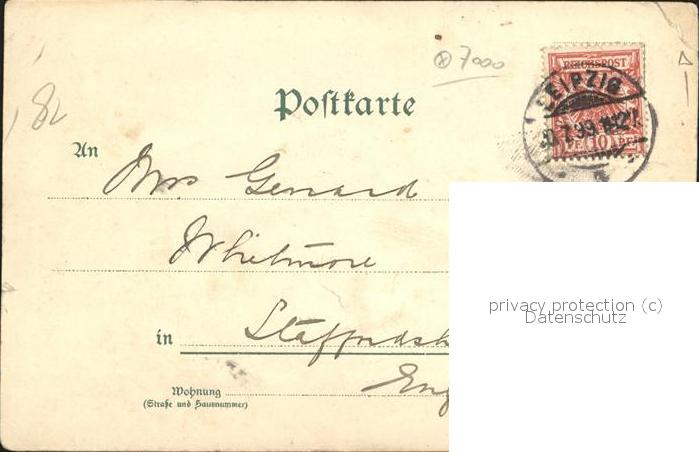 7000
82
REICHSPOST
LEIPZIG
Postkarte
An Mrs Gerrard
Whitmore
in Staffordsh
Eng
Wohnung
(Straße und Hausnummer)
privacy protection (c)
Datenschutz